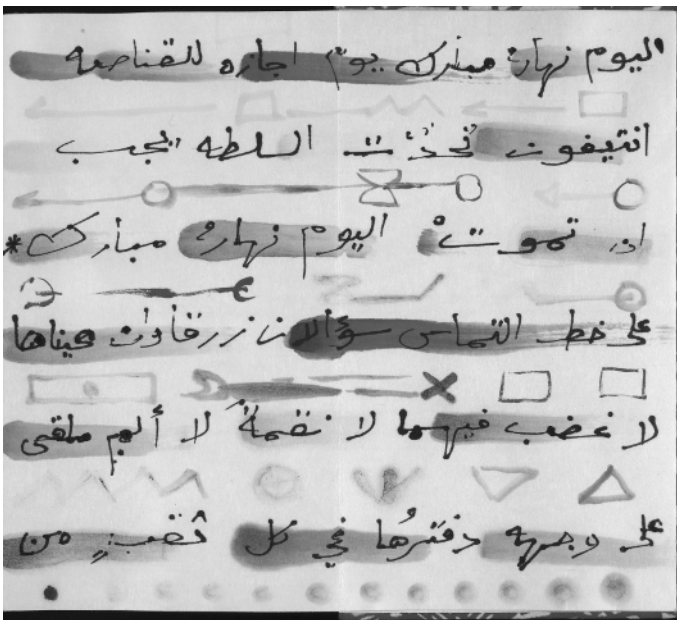 اليوم نهارٌ مبارك يوم اجازه للقناصه
انتيفون تُحدِّث السلطه يجب
ان تموت اليوم نهارٌ مبارك*
على خط التماس سؤالان زرقاوان عيناها
لا غضب فيهما لا نقمةً لا ألم ملقى
على وجهه دفترُها في كل ثقبٍ من